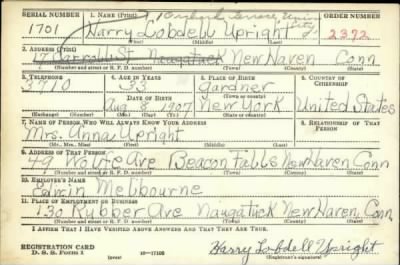 SERIAL NUMBER 1. NAME (Print) ORDER NUMBER
1701 Harry Lobdell Upright 2372
(First) (Middle) (Last)
2. ADDRESS (Print)
17 Carroll St. Naugatuck New Haven Conn
(Number and street or R. F. D. number) (Town) (County) (State)
3. TELEPHONE 4. AGE IN YEARS 5. PLACE OF BIRTH 6. COUNTRY OF CITIZENSHIP
3710 33 Gardner
DATE OF BIRTH (Town or county)
Aug 8 1907 New York United States
(Exchange) (Number) (Mo.) (Day) (Yr.) (State or country)
7. NAME OF PERSON WHO WILL ALWAYS KNOW YOUR ADDRESS 8. RELATIONSHIP OF THAT PERSON
Mrs. Anna Upright
(Mr., Mrs., Miss) (First) (Middle) (Last)
9. ADDRESS OF THAT PERSON
49 Wolfe Ave Beacon Falls New Haven Conn
(Number and street or R. F. D. number) (Town) (County) (State)
10. EMPLOYER'S NAME
Edwin Melbourne
11. PLACE OF EMPLOYMENT OR BUSINESS
130 Rubber Ave Naugatuck New Haven Conn
(Number and street or R. F. D. number) (Town) (County) (State)
I AFFIRM THAT I HAVE VERIFIED ABOVE ANSWERS AND THAT THEY ARE TRUE.
REGISTRATION CARD
D. S. S. Form 1 (over) 16-17105 Harry Lobdell Upright
(Registrant's signature)